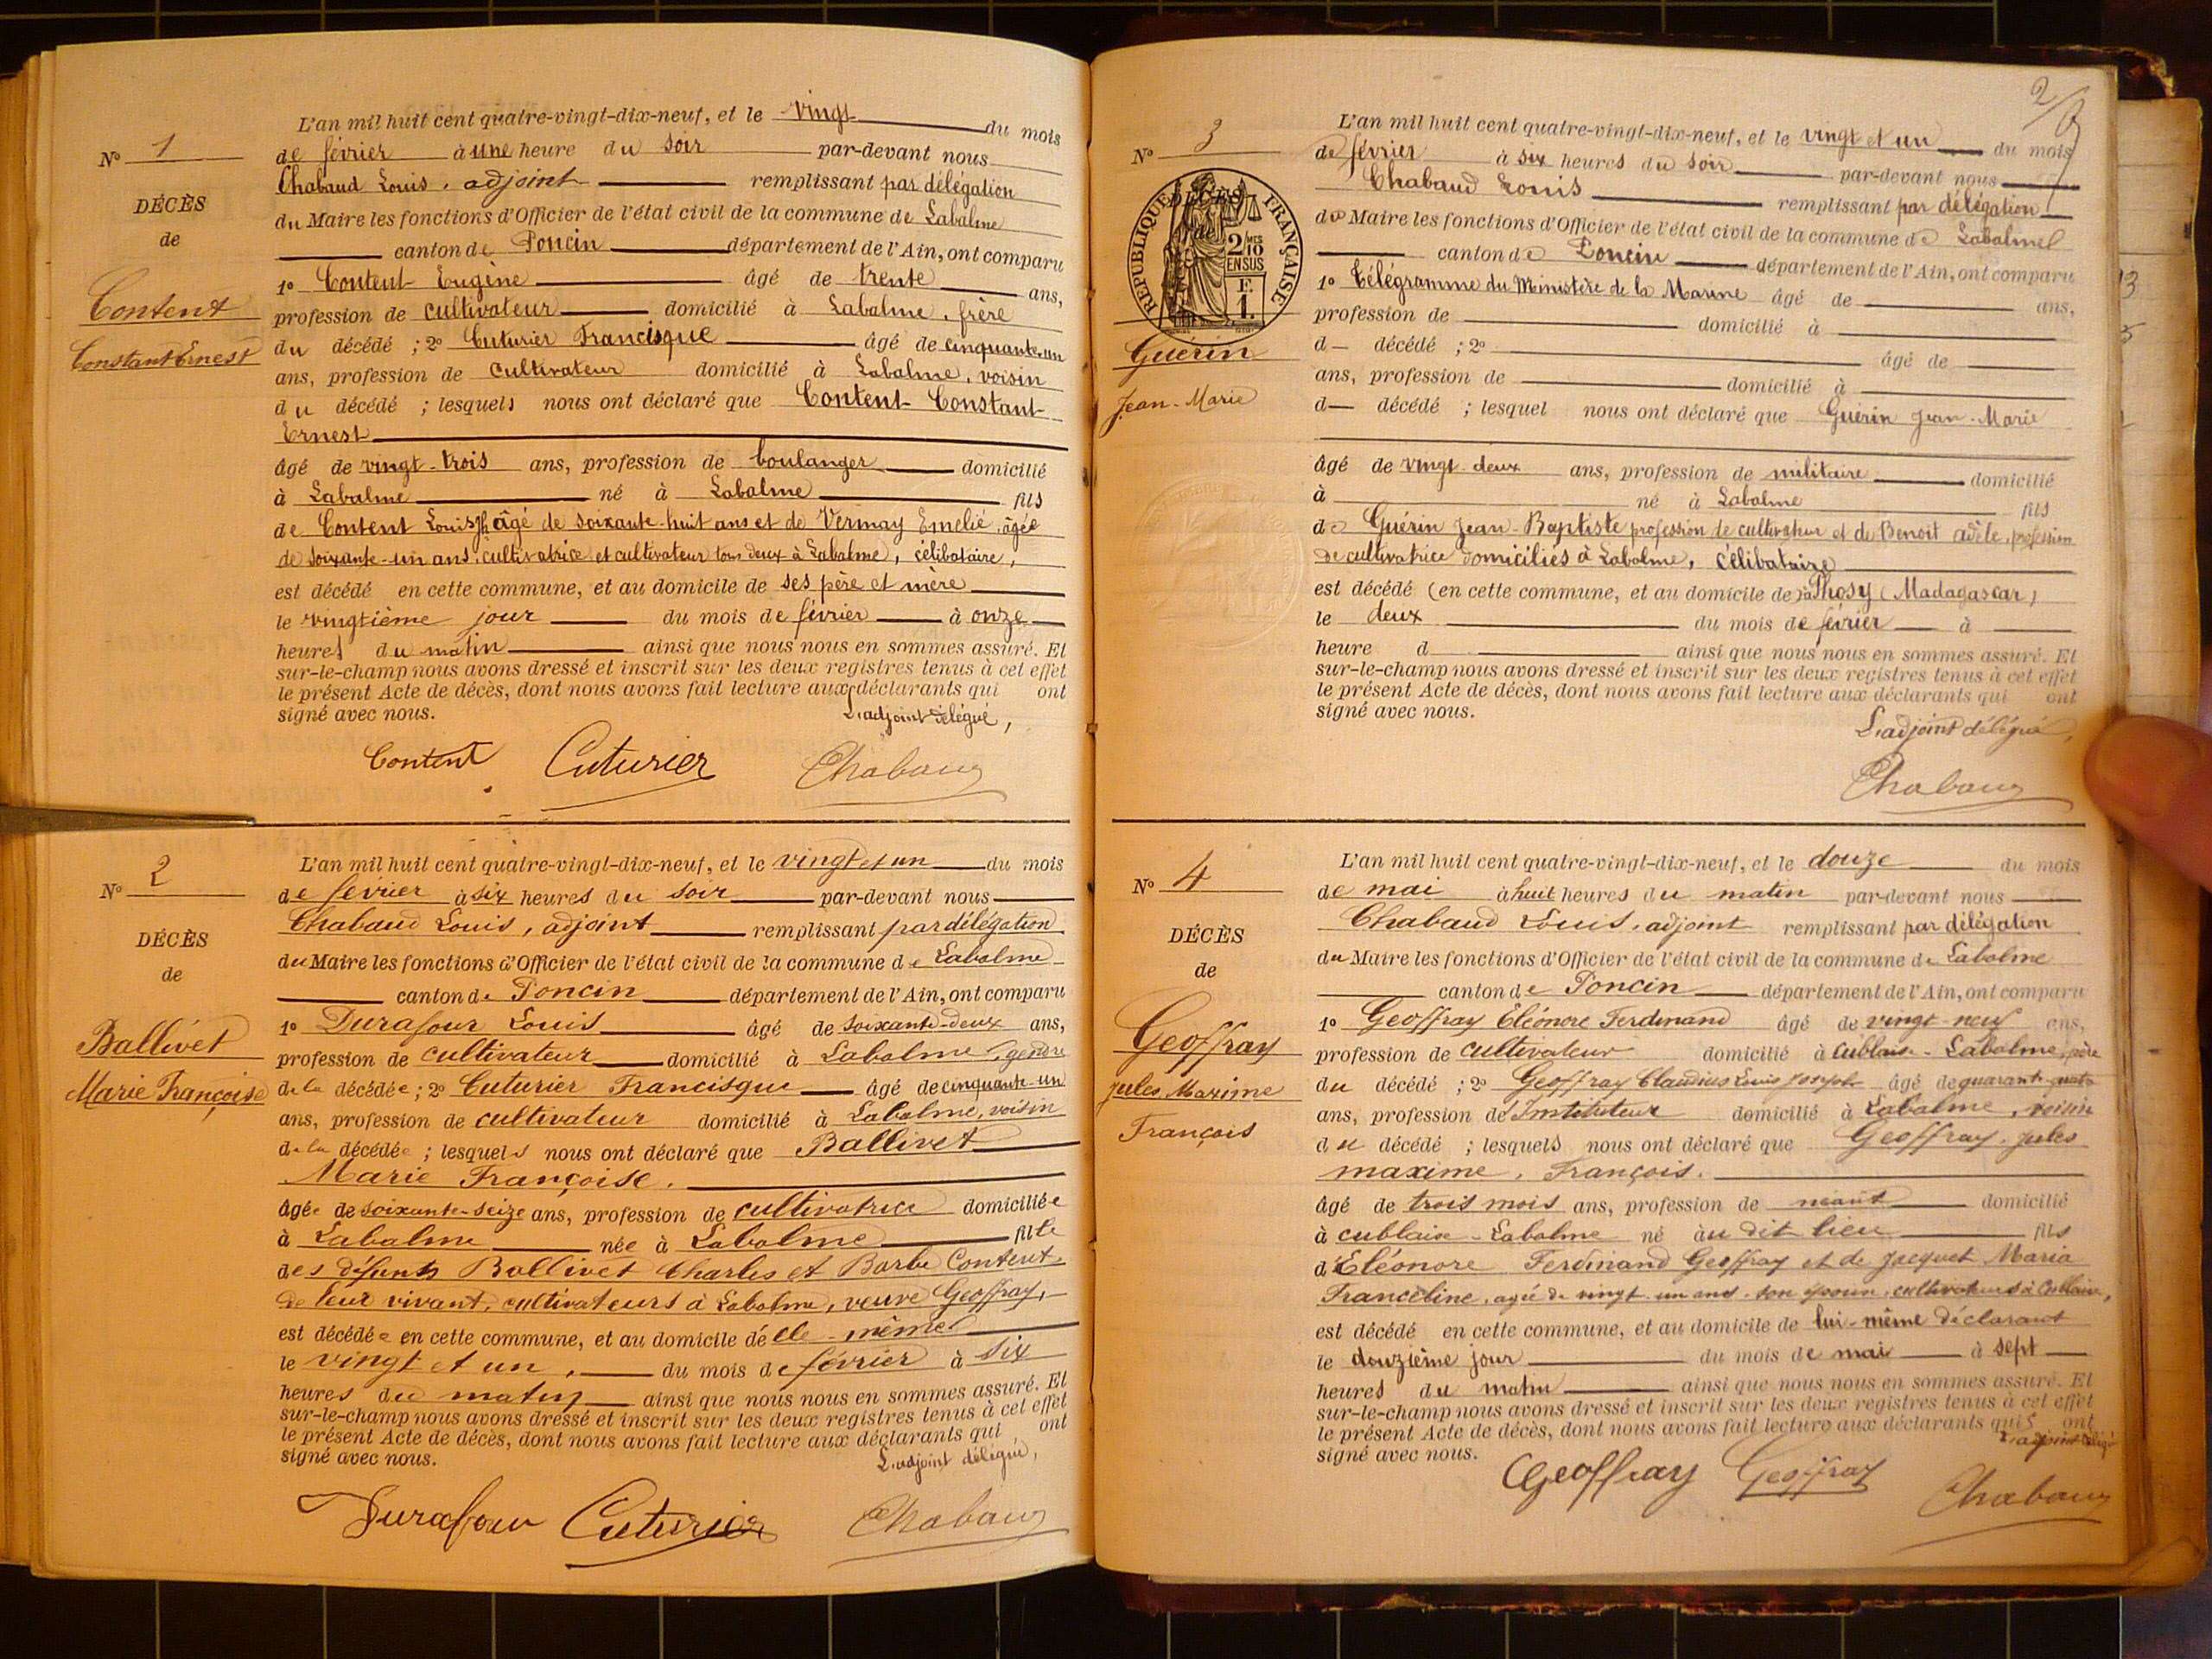 N° 1
DÉCÈS
de
Content
Constant Ernest
L'an mil huit cent quatre-vingt-dix-neuf, et le vingt du mois
de février à une heure du soir par-devant nous
Chabaud Louis, adjoint remplissant par délégation
du Maire les fonctions d'Officier de l'état civil de la commune de Labalme
canton de Poncin département de l'Ain, ont comparu
1° Content Eugène âgé de trente ans,
profession de cultivateur domicilié à Labalme, frère
du décédé ; 2° Cuturier Francisque âgé de cinquante-un
ans, profession de cultivateur domicilié à Labalme, voisin
du décédé ; lesquels nous ont déclaré que Content Constant
Ernest
âgé de vingt-trois ans, profession de boulanger domicilié
à Labalme né à Labalme fils
de Content Louis Jh âgé de soixante-huit ans et de Vermay Emelie, âgée
de soixante-un ans, cultivatrice et cultivateur tous deux à Labalme, célibataire,
est décédé en cette commune, et au domicile de ses père et mère
le vingtième jour du mois de février à onze
heures du matin ainsi que nous nous en sommes assuré. Et
sur-le-champ nous avons dressé et inscrit sur les deux registres tenus à cet effet
le présent Acte de décès, dont nous avons fait lecture aux déclarants qui ont
signé avec nous. L'adjoint délégué,
Content Cuturier Chabaud
N° 2
DÉCÈS
de
Ballivet
Marie Françoise
L'an mil huit cent quatre-vingt-dix-neuf, et le vingt et un du mois
de février à six heures du soir par-devant nous
Chabaud Louis, adjoint remplissant par délégation
du Maire les fonctions d'Officier de l'état civil de la commune de Labalme
canton de Poncin département de l'Ain, ont comparu
1° Durafour Louis âgé de soixante-deux ans,
profession de cultivateur domicilié à Labalme, gendre
de la décédée ; 2° Cuturier Francisque âgé de cinquante-un
ans, profession de cultivateur domicilié à Labalme, voisin
de la décédée ; lesquels nous ont déclaré que Ballivet
Marie Françoise.
âgée de soixante-seize ans, profession de cultivatrice domiciliée
à Labalme née à Labalme fille
des défunts Ballivet Charles et Barbe Content
de leur vivant, cultivateurs à Labalme, veuve Geoffray,
est décédée en cette commune, et au domicile de elle-même
le vingt et un, du mois de février à six
heures du matin ainsi que nous nous en sommes assuré. Et
sur-le-champ nous avons dressé et inscrit sur les deux registres tenus à cet effet
le présent Acte de décès, dont nous avons fait lecture aux déclarants qui ont
signé avec nous. L'adjoint délégué,
Durafour Cuturier Chabaud
2/
N° 3
DÉCÈS
de
RÉPUBLIQUE FRANÇAISE
2 MES 10
EN SUS
F.
1.
Guérin
Jean-Marie
L'an mil huit cent quatre-vingt-dix-neuf, et le vingt et un du mois
de février à six heures du soir par-devant nous
Chabaud Louis remplissant par délégation
du Maire les fonctions d'Officier de l'état civil de la commune de Labalme
canton de Poncin département de l'Ain, ont comparu
1° Télégramme du Ministère de la Marine âgé de ans,
profession de domicilié à
d décédé ; 2° âgé de
ans, profession de domicilié à
d décédé ; lesquel nous ont déclaré que Guérin Jean-Marie
âgé de vingt-deux ans, profession de militaire domicilié
à né à Labalme fils
de Guérin Jean-Baptiste profession de cultivateur et de Benoit adèle, profession
de cultivatrice domiciliés à Labalme, célibataire
est décédé (en cette commune, et au domicile de) à Phosy (Madagascar)
le deux du mois de février à
heure d ainsi que nous nous en sommes assuré. Et
sur-le-champ nous avons dressé et inscrit sur les deux registres tenus à cet effet
le présent Acte de décès, dont nous avons fait lecture aux déclarants qui ont
signé avec nous.
L'adjoint délégué,
Chabaud
N° 4
DÉCÈS
de
Geoffray
Jules Maxime
François
L'an mil huit cent quatre-vingt-dix-neuf, et le douze du mois
de mai à huit heures du matin par-devant nous
Chabaud Louis, adjoint remplissant par délégation
du Maire les fonctions d'Officier de l'état civil de la commune de Labalme
canton de Poncin département de l'Ain, ont comparu
1° Geoffray Eléonore Ferdinand âgé de vingt-neuf ans,
profession de cultivateur domicilié à Cublaise-Labalme, père
du décédé ; 2° Geoffray Claudius Louis Joseph âgé de quarante-quatre
ans, profession de Instituteur domicilié à Labalme, voisin
du décédé ; lesquels nous ont déclaré que Geoffray, Jules
maxime, François.
âgé de trois mois ans, profession de néant domicilié
à cublaise-Labalme né au dit lieu fils
d'Eléonore Ferdinand Geoffray et de Jacquet Maria
Franceline, agée de vingt-un ans, son épouse, cultivateurs à Cublaise,
est décédé en cette commune, et au domicile de lui-même déclarant
le douzième jour du mois de mai à sept
heures du matin ainsi que nous nous en sommes assuré. Et
sur-le-champ nous avons dressé et inscrit sur les deux registres tenus à cet effet
le présent Acte de décès, dont nous avons fait lecture aux déclarants qui ont
signé avec nous. L'adjoint délégué
Geoffray Geoffray Chabaud